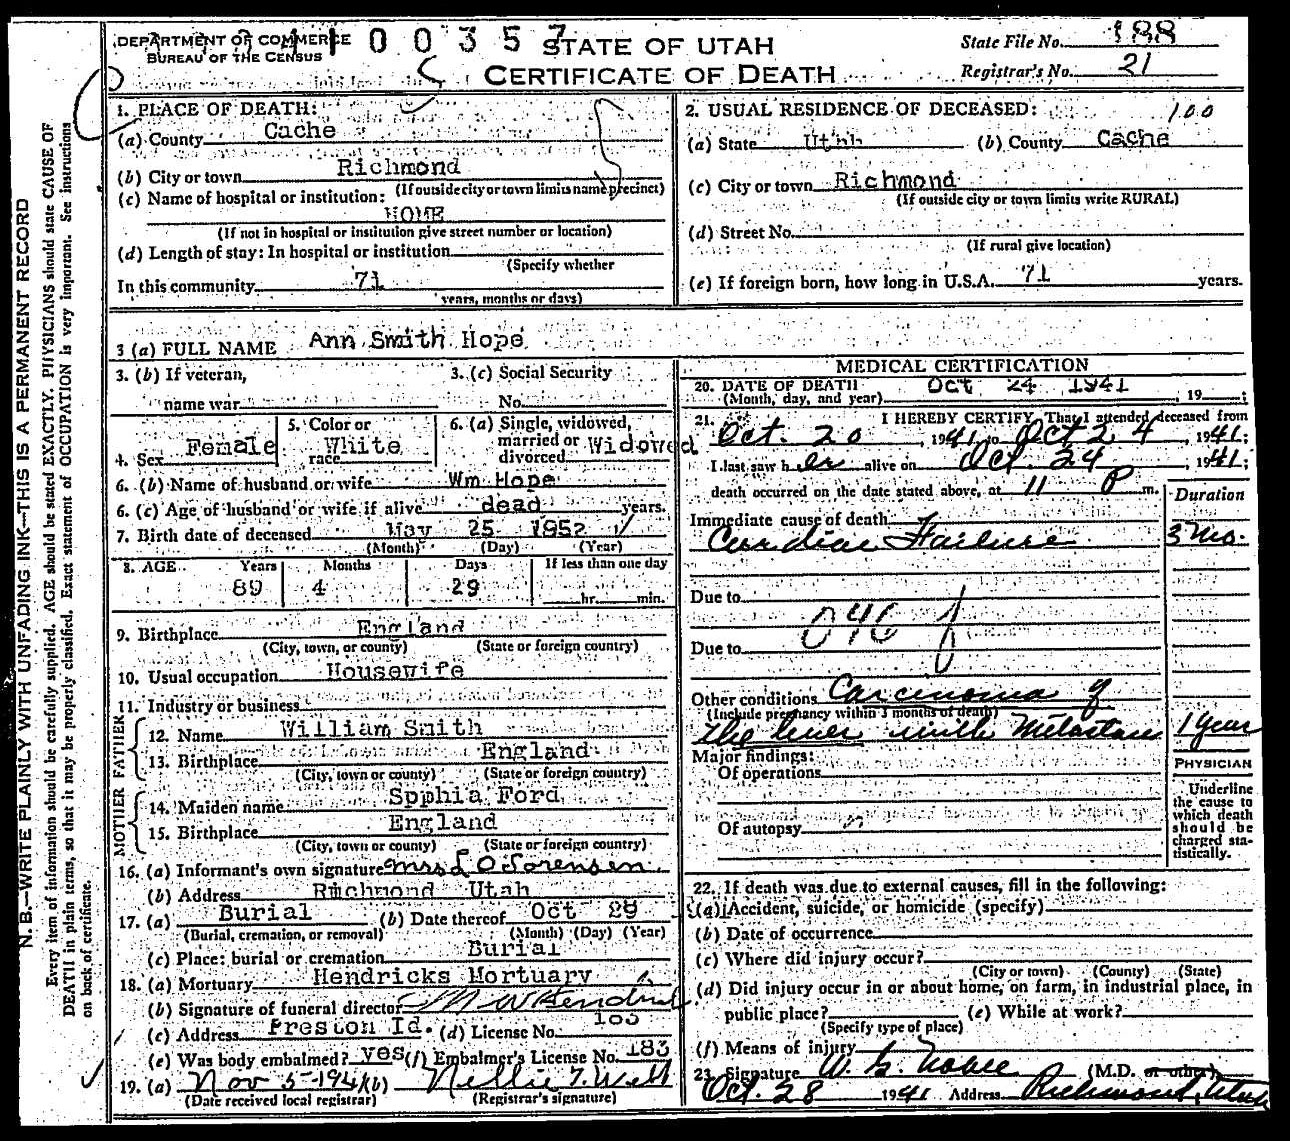 DEPARTMENT OF COMMERCE
BUREAU OF THE CENSUS
00357
STATE OF UTAH
CERTIFICATE OF DEATH
State File No. 188
Registrar's No. 21
1. PLACE OF DEATH:
(a) County Cache
(b) City or town Richmond
(If outside city or town limits name precinct)
(c) Name of hospital or institution:
HOME
(If not in hospital or institution give street number or location)
(d) Length of stay: In hospital or institution
(Specify whether
In this community 71
years, months or days)
2. USUAL RESIDENCE OF DECEASED: 100
(a) State Utah (b) County Cache
(c) City or town Richmond
(If outside city or town limits write RURAL)
(d) Street No.
(If rural give location)
(e) If foreign born, how long in U.S.A. 71 years.
3 (a) FULL NAME Ann Smith Hope
3. (b) If veteran,
name war
3. (c) Social Security
No.
4. Sex Female
5. Color or
race White
6. (a) Single, widowed,
married or
divorced Widowed
6. (b) Name of husband or wife Wm Hope
6. (c) Age of husband or wife if alive dead years.
7. Birth date of deceased May 25 1952
(Month) (Day) (Year)
8. AGE Years Months Days If less than one day
89 4 29 hr. min.
9. Birthplace England
(City, town, or county) (State or foreign country)
10. Usual occupation Housewife
11. Industry or business
FATHER
12. Name William Smith
13. Birthplace England
(City, town or county) (State or foreign country)
MOTHER
14. Maiden name Spphia Ford
15. Birthplace England
(City, town or county) (State or foreign country)
16. (a) Informant's own signature Mrs L O Sorensen
(b) Address Richmond Utah
17. (a) Burial (b) Date thereof Oct 29
(Burial, cremation, or removal) (Month) (Day) (Year)
(c) Place: burial or cremation Burial
18. (a) Mortuary Hendricks Mortuary
(b) Signature of funeral director
(c) Address Preston Id. (d) License No. 183
(e) Was body embalmed? yes (f) Embalmer's License No. 183
19. (a) Nov 5-1941 (b) Nellie T. Webb
(Date received local registrar) (Registrar's signature)
MEDICAL CERTIFICATION
20. DATE OF DEATH Oct 24 1941
(Month, day, and year) , 19 ;
21. I HEREBY CERTIFY, That I attended deceased from
Oct. 20, 1941 to Oct 24, 1941;
I last saw her alive on Oct. 24, 1941;
death occurred on the date stated above, at 11 P m.
Duration
Immediate cause of death
Cardiac Failure 3 Mo.
Due to
046 f
Due to
Other conditions Carcinoma of
(Include pregnancy within 3 months of death)
the liver with Metastases 1 Year
Major findings:
Of operations
Of autopsy
PHYSICIAN
Underline
the cause to
which death
should be
charged sta-
tistically.
22. If death was due to external causes, fill in the following:
(a) Accident, suicide, or homicide (specify)
(b) Date of occurrence
(c) Where did injury occur?
(City or town) (County) (State)
(d) Did injury occur in or about home, on farm, in industrial place, in
public place? (e) While at work?
(Specify type of place)
(f) Means of injury
23. Signature W. G. Noble (M.D. or other)
Oct. 28 1941 Address Richmond, Utah
N. B.—WRITE PLAINLY WITH UNFADING INK—THIS IS A PERMANENT RECORD
Every item of information should be carefully supplied. AGE should be stated EXACTLY. PHYSICIANS should state CAUSE OF
DEATH in plain terms, so that it may be properly classified. Exact statement of OCCUPATION is very important. See instructions
on back of certificate.